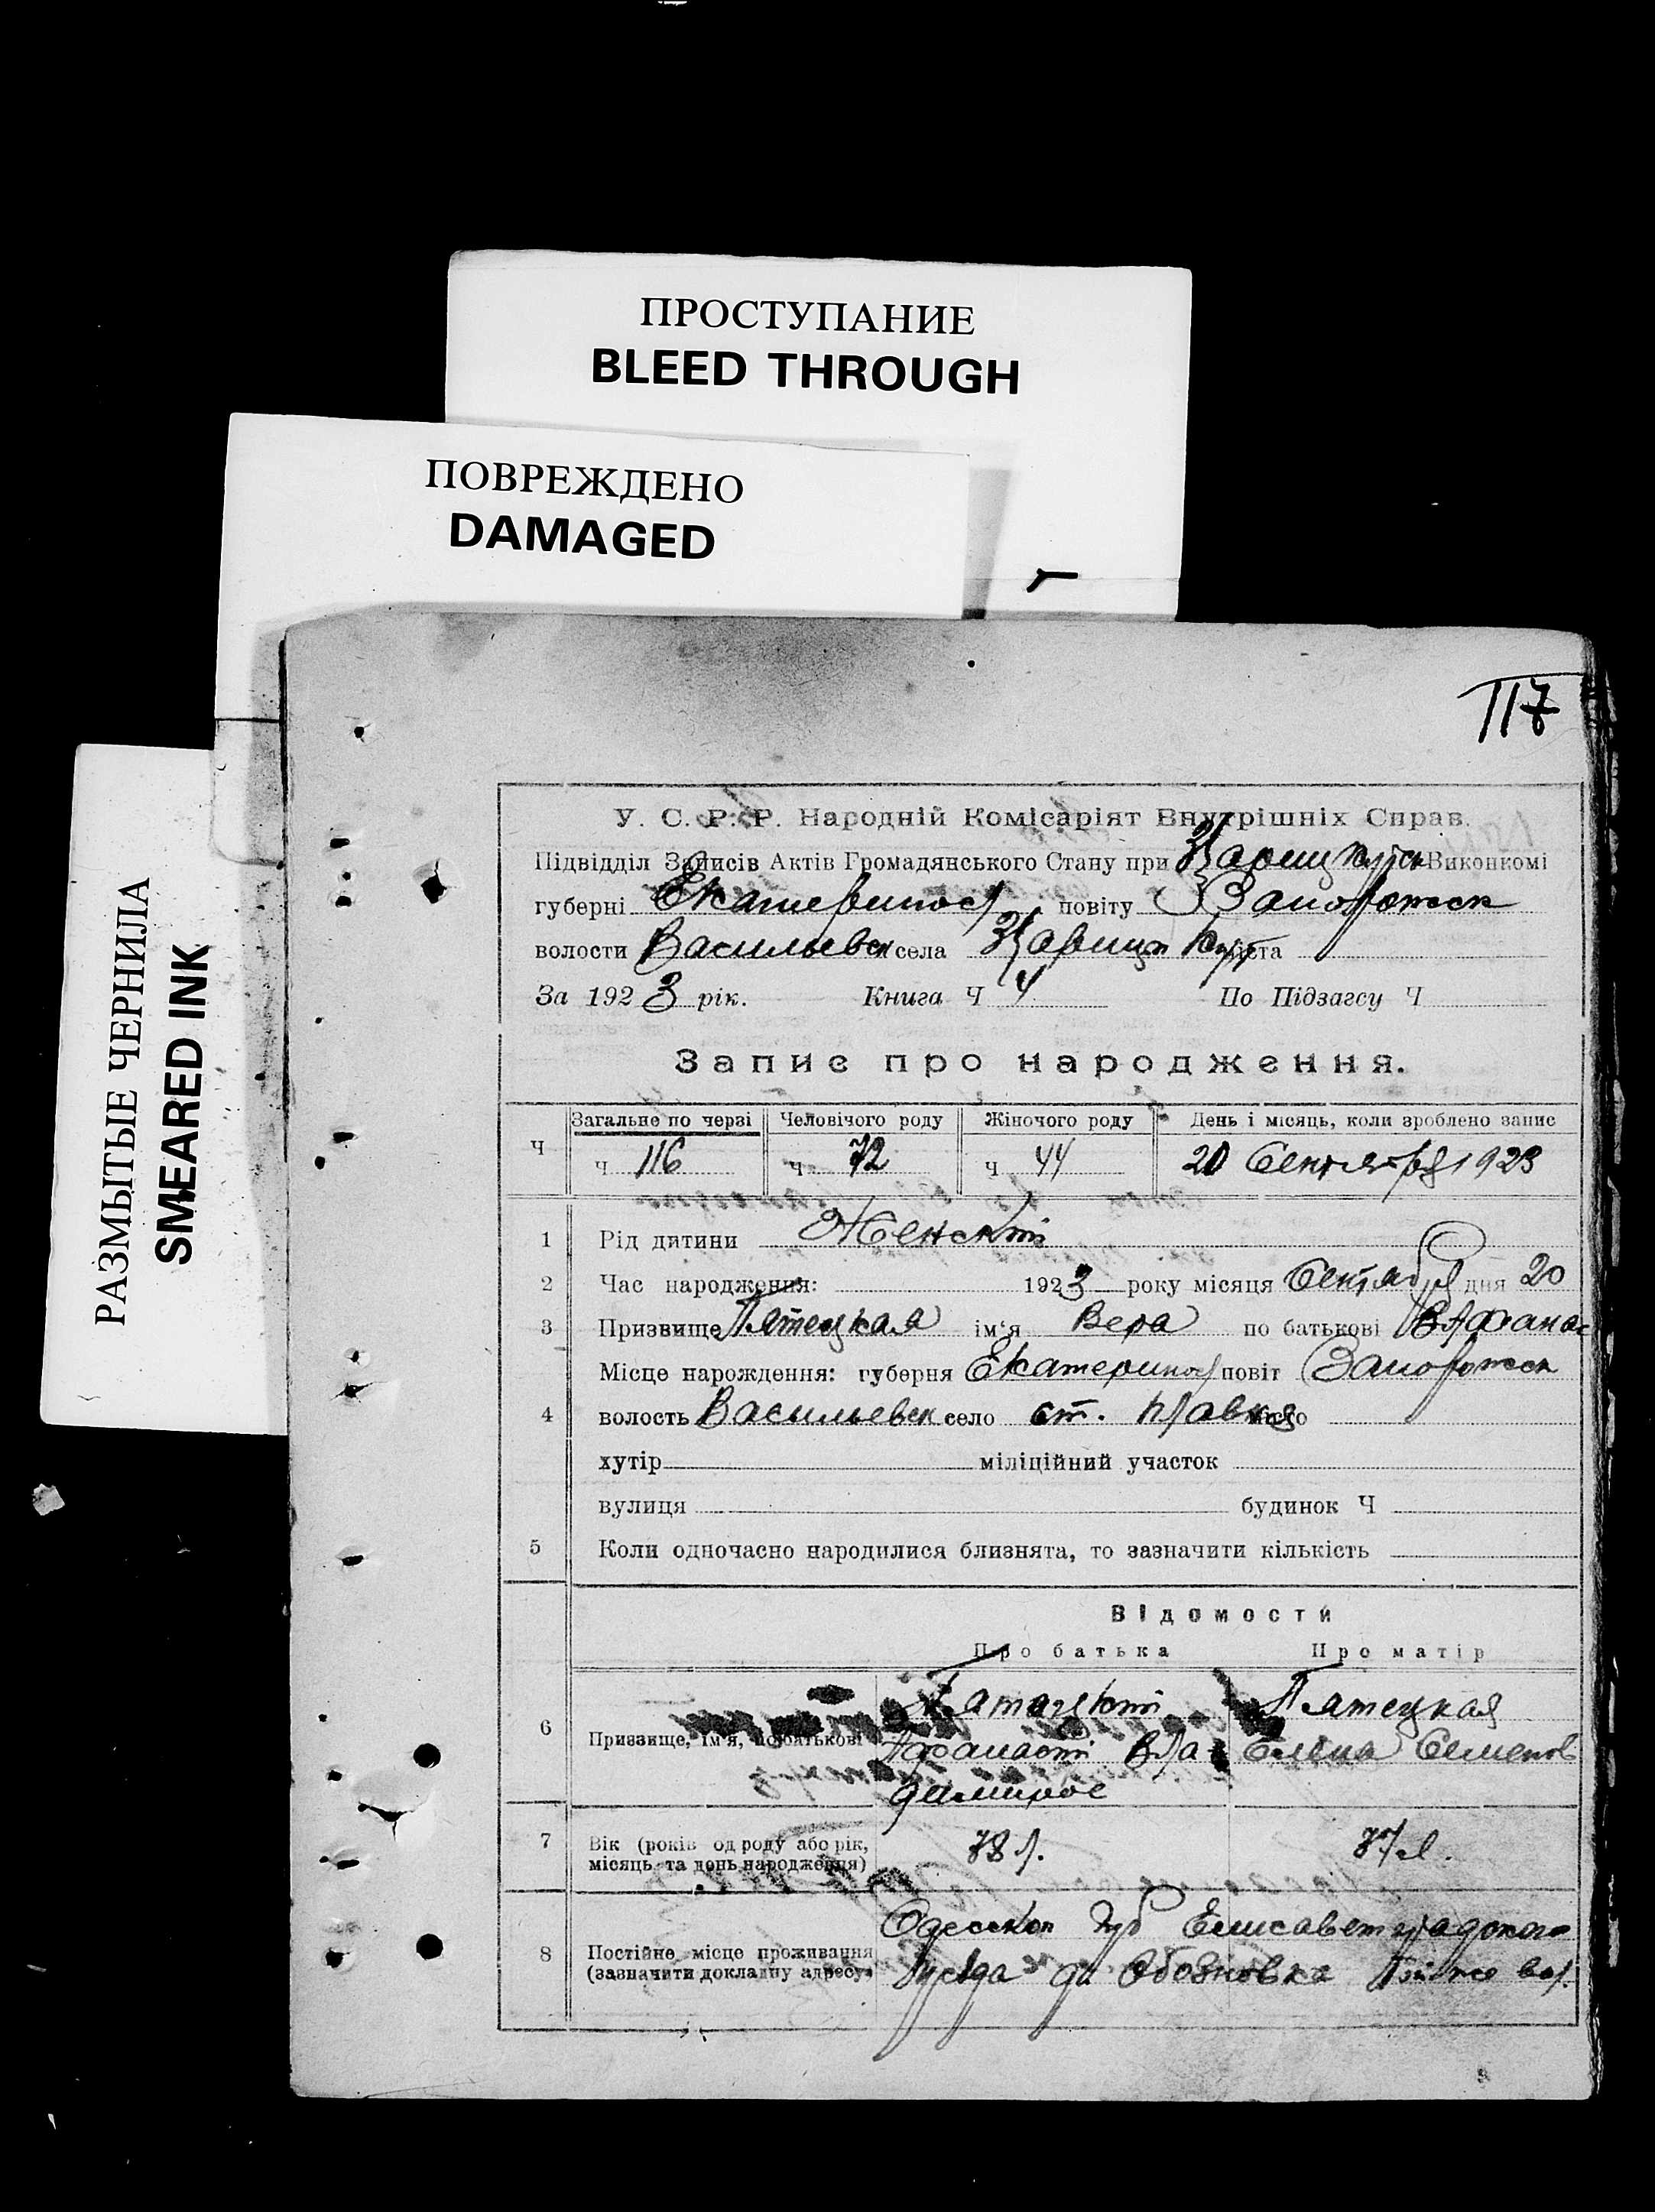 ПРОСТУПАНИЕ
BLEED THROUGH
ПОВРЕЖДЕНО
DAMAGED
РАЗМЫТЫЕ ЧЕРНИЛА
SMEARED INK
117
У. С. Р. Р. Народній Комісаріят Внутрішніх Справ.
Підвідділ Записів Актів Громадянського Стану при Виконкомі
губерні Екатеринос повіту Запорожск
волости Васильевск села міста
За 1923 рік. Книга Ч 4 По Підзагсу Ч
Запис про народження.
Ч Загальне по черзі Человічого роду Жіночого роду День і місяць, коли зроблено запис
ч 116 ч 72 ч 44 20 Сентября 1923
1 Рід дитини Женский
2 Час народження: 1923 року місяця Сентября дня 20
3 Призвище Пятецкая ім'я Вера по батькові
Місце нарождення: губерня Екатеринос повіт Запорожск
4 волость Васильевск село ст. місто
хутір міліційний участок
вулиця будинок Ч
5 Коли одночасно народилися близнята, то зазначити кількість
Відомости
Про батька Про матір
6 Призвище, ім'я, по батькові
Пятецкая
Афанасий Вла Елена Семенов
димиров
7 Вік (років од роду або рік,
місяць та день народження)
8 Постійне місце проживання
(зазначити докладну адресу)
Одесской губ Елисаветградского
уезда Обозновка той же вол.